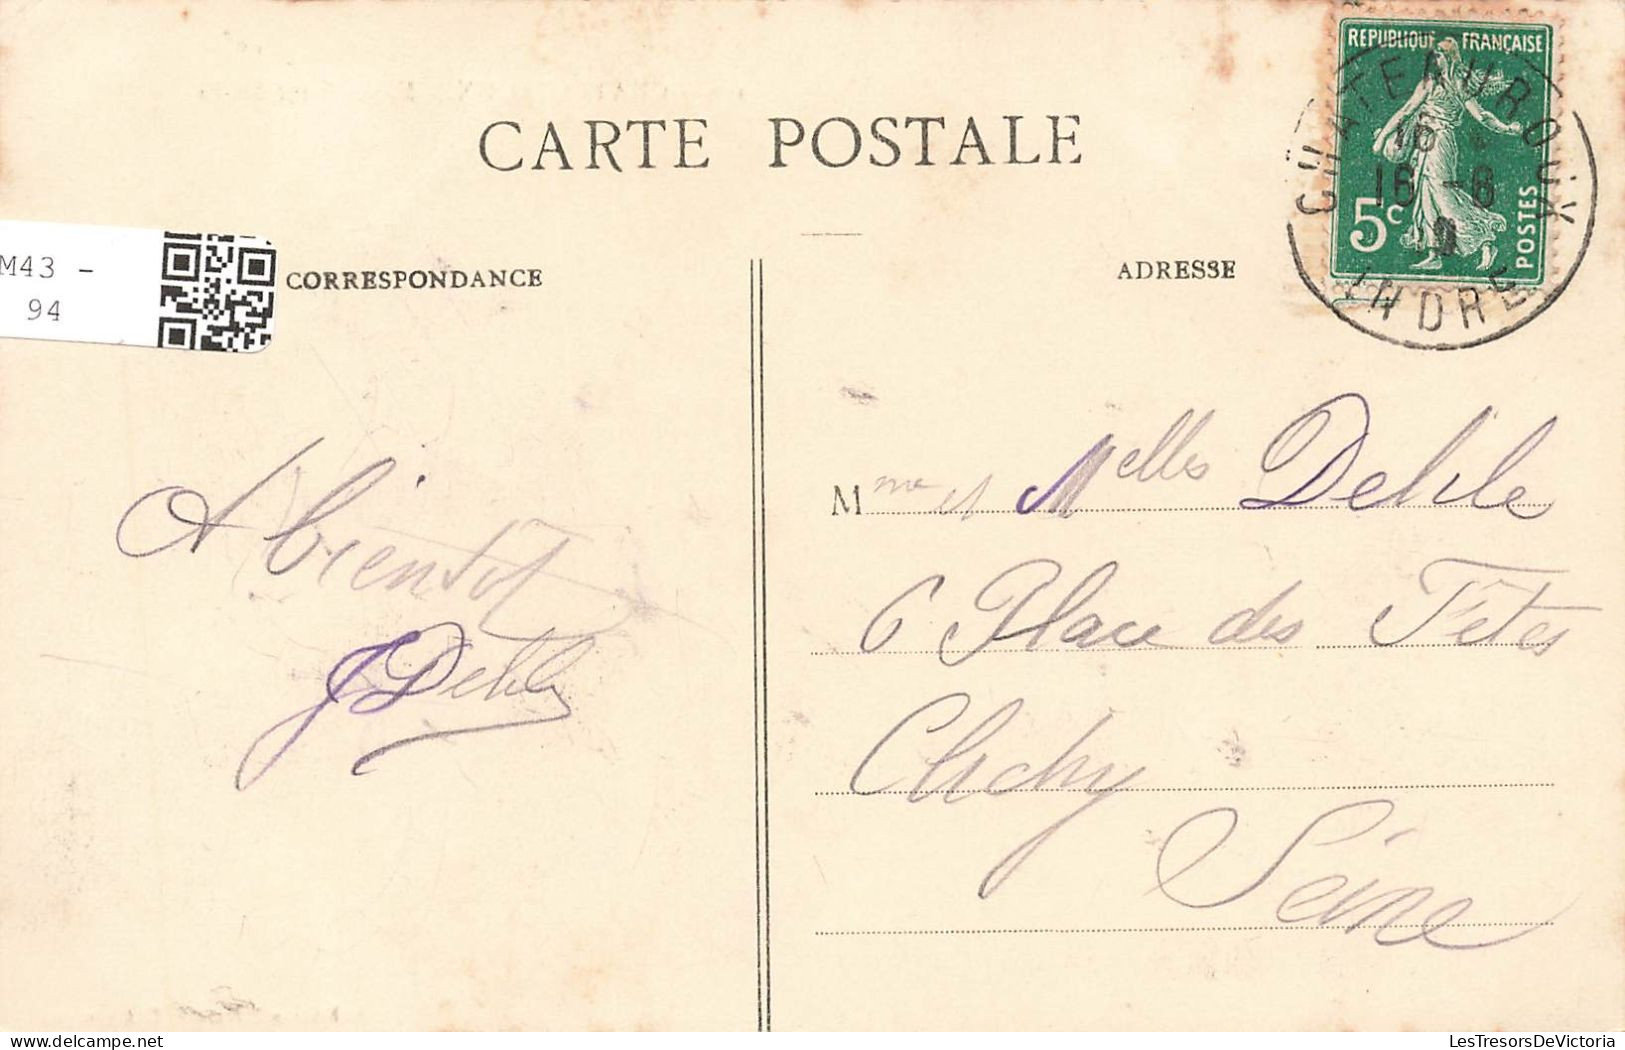 CARTE POSTALE
REPUBLIQUE FRANÇAISE
5c
POSTES
CHATEAUROUX
16
16 -8
INDRE
M43 -
94
CORRESPONDANCE
ADRESSE
A bientôt
J Delile
Mme et Melles Delile
6 Place des Fêtes
Clichy
Seine
LesTresorsDeVictoria